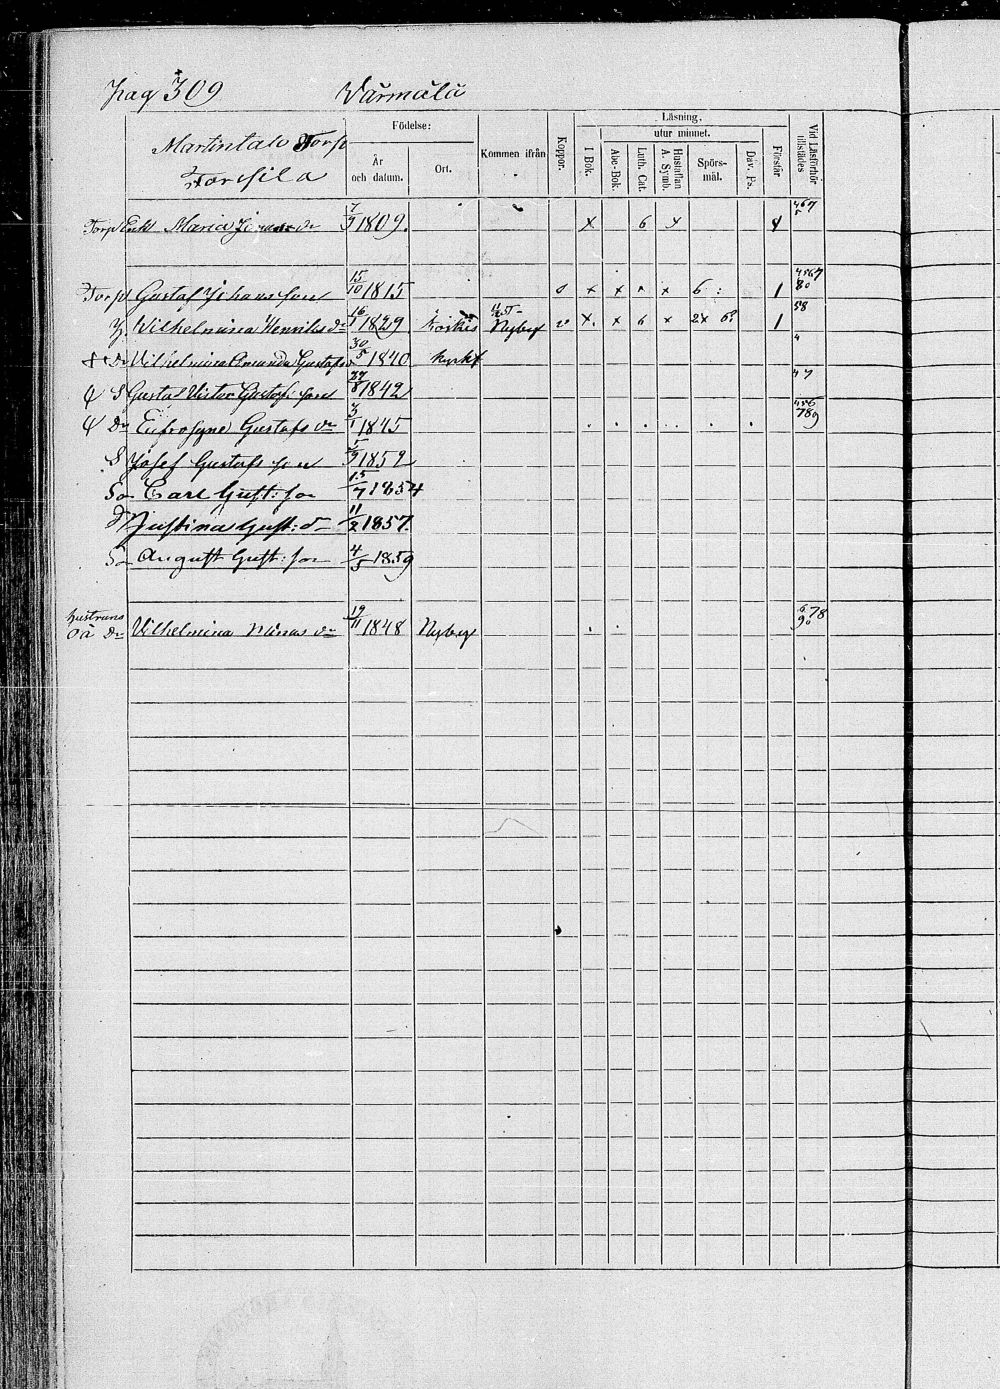 Pag 309 Värmälä
Martintalo Torp
Torsila
Födelse:
År och datum.
Ort.
Kommen ifrån
Koppor.
Läsning.
utur minnet.
I Bok.
Abc-Bok
Luth. Cat.
Hustaflan A. Symb.
Spörsmål.
Dav. Ps.
Förstår
Vid Läsförhör tillstädes
Torp Enk Maria 7/9 1809. x 6 x 467
Torp Gustaf Johansson 15/10 1815 o x x x 6 : 1 4567 80
H. Wilhelmina Henriksdr 16/1 1829 Nyby v x. x 6 x 2x 6? 1 58
dr Vilhelmina Amanda Gustafsdr 30/5 1840 Kyrksl 4
S Gustaf Victor Gustafsson 27/8 1842 47
dr Eufrosyne Gustafsdr 3/1 1845 . . . . . . 456 789
S Josef Gustafsson 5/9 1852
So Carl Gust:son 15/7 1854
dr Justina Gust:dr 11/2 1857.
So August Gust:son 4/5 1859
hustruns oä dr Vilhelmina dr 19/11 1848 Nyby . . 678 90